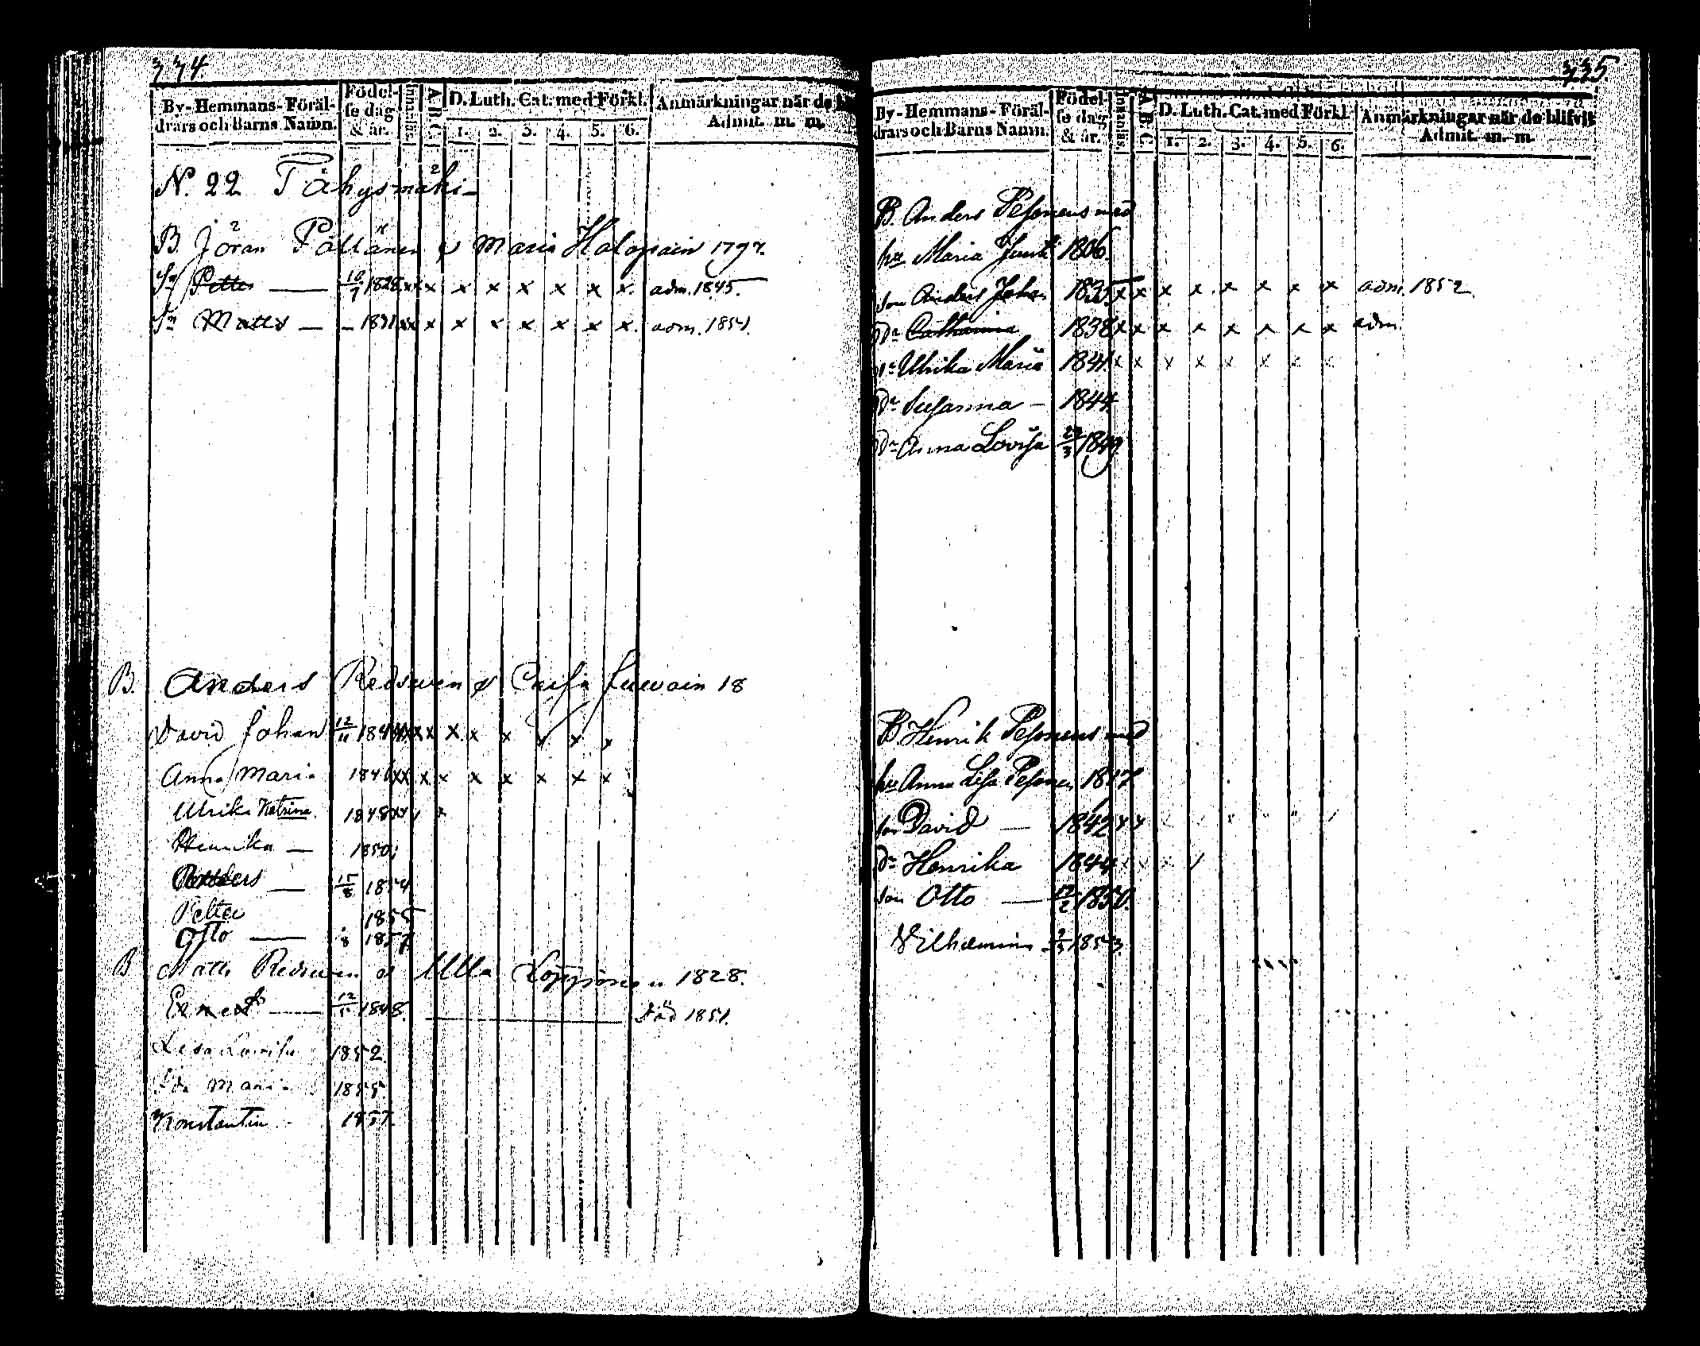 334.
By-Hemmans-Föräl-
drars och Barns Namn.
Födel-
se dag
& år.
Innanläs.
A.B.C.
D. Luth. Cat. med Förkl.
1. 2. 3. 4. 5. 6.
Anmärkningar när de
Admit. m. m.
N. 22
B. Jöran Pöllänen & Maria Halopain 1797.
Sn Petter 1828 x x x x x x x x x adm. 1845.
Sn Matts x x x x x x x x x adm. 1851.
B. Anders Redsven & Caisa 18
David Johan 12/11 1844 x x x x x x x x x
Anna Maria 1846 x x x x x x x x x
Ulrika Katrina 1848 x x x
Henrika 1850
15/8 1854
Petter 1855
Otto 1857
B Matts Redsven & Ulla 1828.
Ernest 12/5 1848. död 1851.
Lisa Lovisa 1852
Ida Maria 1855
Konstantin 1857.
335
By-Hemmans-Föräl-
drars och Barns Namn.
Födel-
se dag
& år.
Innanläs.
A.B.C.
D. Luth. Cat. med Förkl.
1. 2. 3. 4. 5. 6.
Anmärkningar när de blifvit
Admit. m. m.
B. Anders Pesonens med
hu Maria 1806.
son Anders Johan 1835 x x x x x x x x adm. 1852.
Dr Catharina 1838 x x x x x x x x adm.
Dr Ulrika Maria 1841 x x x x x x x x
Dr Susanna 1844
Dr Anna Lovisa 22/3 1849.
B Henrik Pesonens med
hu Anna Lisa Pesonen 1817
son David 1842 x x
Dr Henrika 1844
son Otto 1850.
Vilhelmina 1853